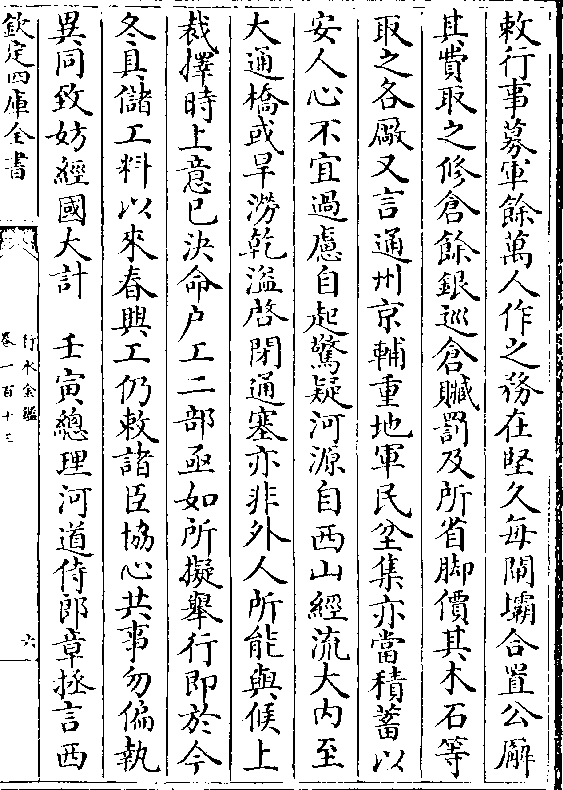 敕行事募軍餘萬人作之務在堅久每閘壩合置公廨
其費取之修倉餘銀巡倉贓罰及所省脚價其木石等
取之各厰又言通州京輔重地軍民坌集亦當積蓄以
安人心不宜過慮自起驚疑河源自西山經流大内至
大通橋或旱澇乾溢啓閉通塞亦非外人所能與候上
裁擇時上意已決命户工二部亟如所擬舉行即於今
冬具儲工料以來春興工仍敕諸臣協心共事勿偏執
異同致妨經國大計　壬寅總理河道侍郎章拯言西
欽定四庫全書
行水金鑑
卷一百十三
六